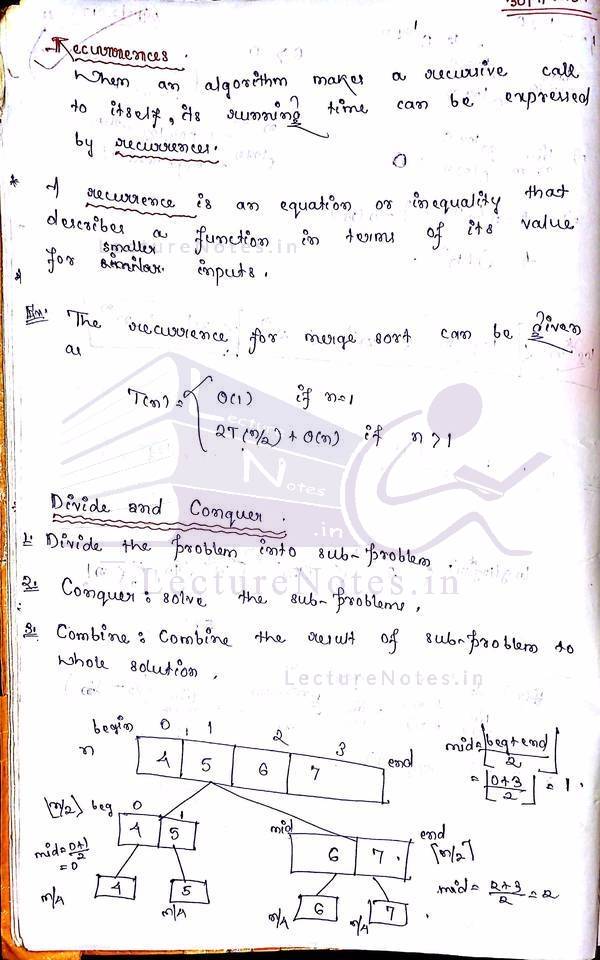 Recurrences.
When an algorithm makes a recursive call
to itself, its running time can be expressed
by recurrences.
* A recurrence is an equation or inequality that
describes a function in terms of its value
for smaller inputs.
Ex:- The recurrence for merge sort can be given
as
T(n) = { O(1) if n=1
2T(n/2) + O(n) if n>1
Divide and Conquer.
1. Divide the problem into sub-problem.
2. Conquer: solve the sub-problems.
3. Combine: Combine the result of sub-problem to
whole solution.
begin 0 1 2 3 end
n 4 5 6 7
mid = ⌊beg+end/2⌋
= ⌊0+3/2⌋ = 1.
⌊n/2⌋ beg 0 1
4 5
mid = 0+1/2
= 0
mid end
6 7 ⌈n/2⌉
mid = 2+3/2 = 2
n/4 4 5 n/4
n/4 6 n/4 7
LectureNotes.in
Lecture
Notes
.in
LectureNotes.in
LectureNotes.in